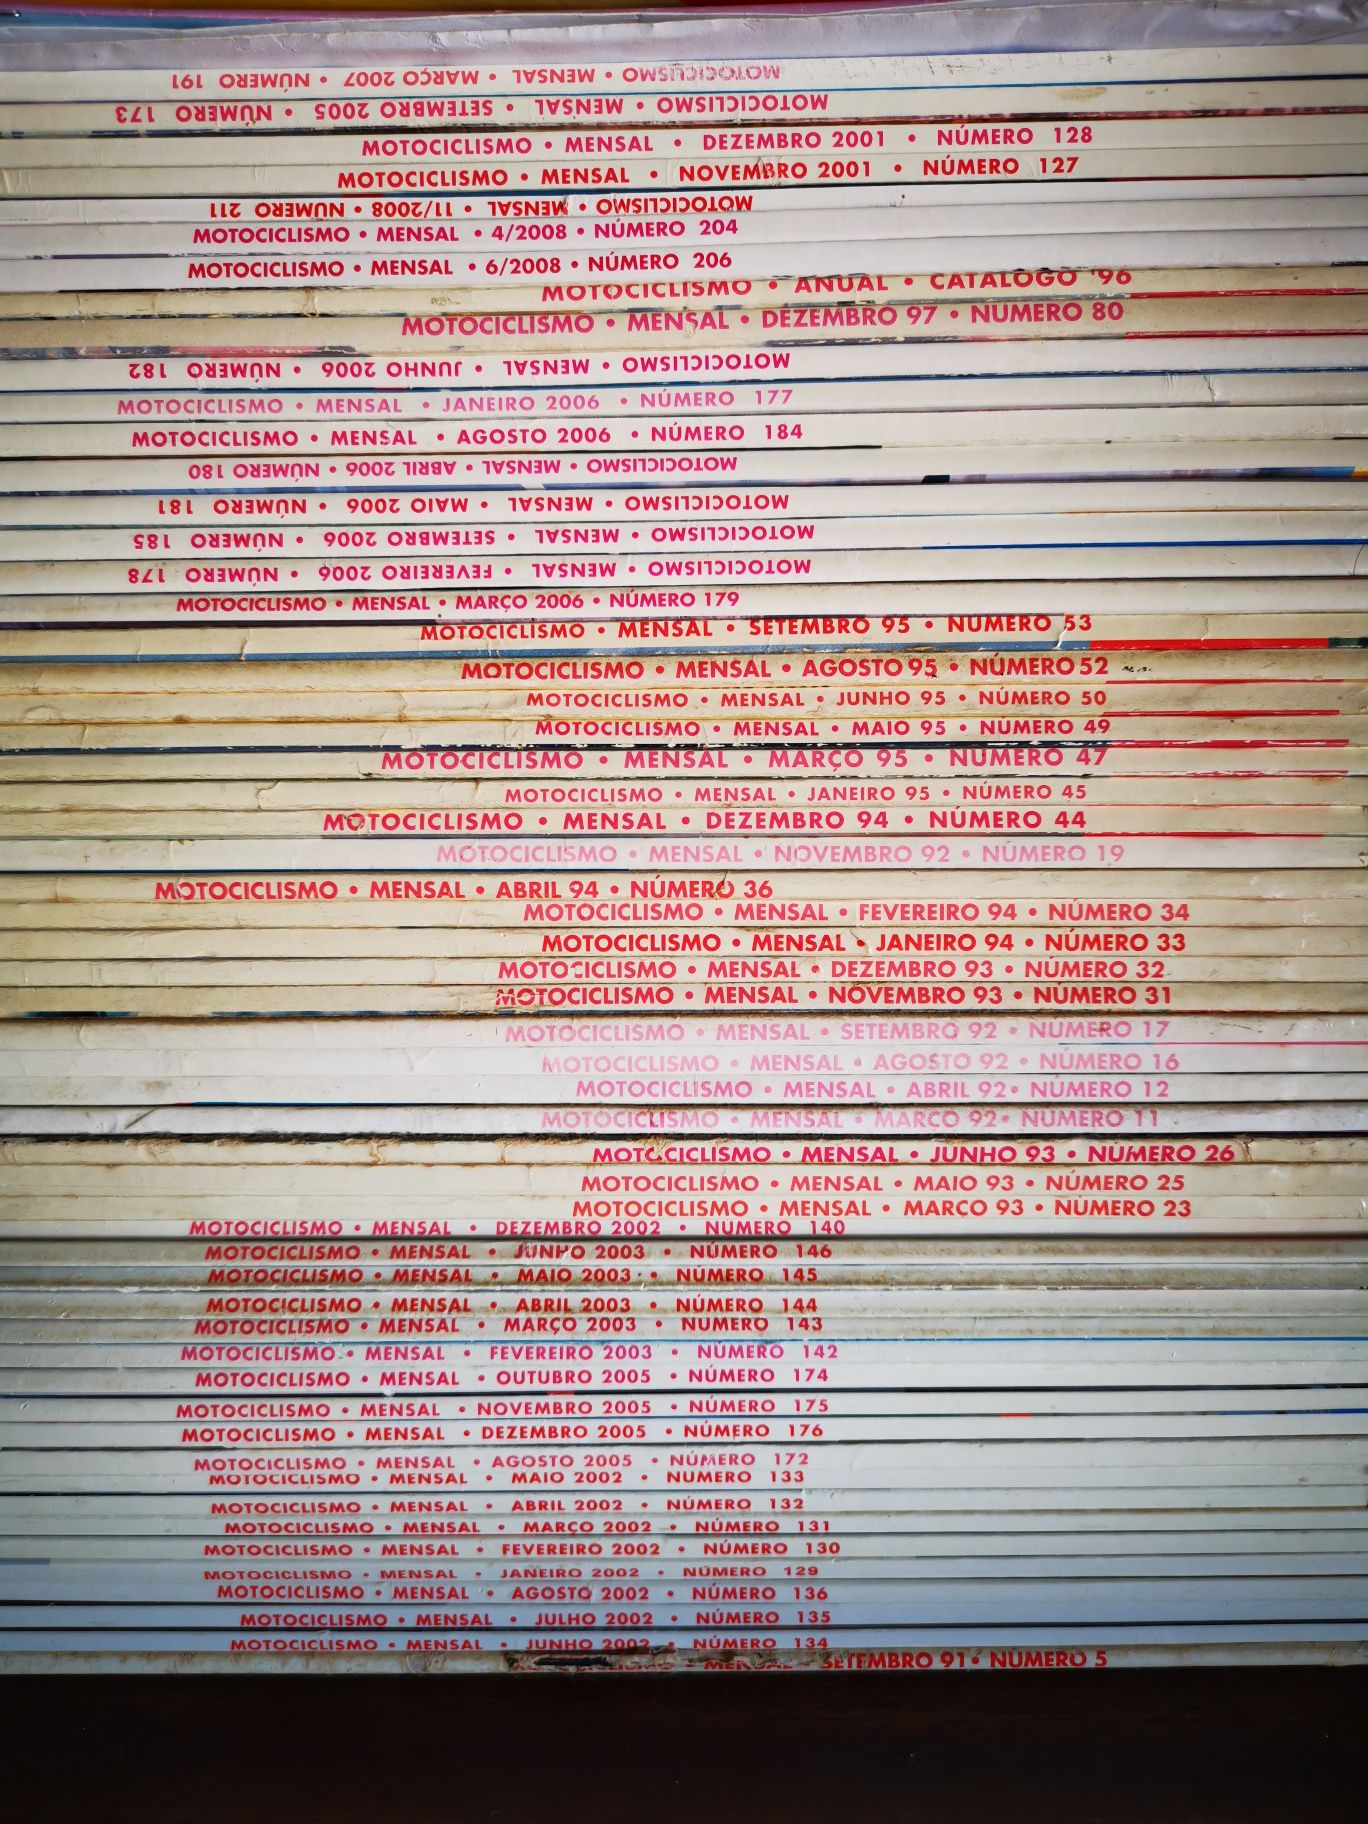 MOTOCICLISMO • MENSAL • MARÇO 2007 • NÚMERO 191
MOTOCICLISMO • MENSAL • SETEMBRO 2005 • NÚMERO 173
MOTOCICLISMO • MENSAL • DEZEMBRO 2001 • NÚMERO 128
MOTOCICLISMO • MENSAL • NOVEMBRO 2001 • NÚMERO 127
MOTOCICLISMO • MENSAL • 11/2008 • NÚMERO 211
MOTOCICLISMO • MENSAL • 4/2008 • NÚMERO 204
MOTOCICLISMO • MENSAL • 6/2008 • NÚMERO 206
MOTOCICLISMO • ANUAL • CATALOGO '96
MOTOCICLISMO • MENSAL • DEZEMBRO 97 • NUMERO 80
MOTOCICLISMO • MENSAL • JUNHO 2006 • NÚMERO 182
MOTOCICLISMO • MENSAL • JANEIRO 2006 • NÚMERO 177
MOTOCICLISMO • MENSAL • AGOSTO 2006 • NÚMERO 184
MOTOCICLISMO • MENSAL • ABRIL 2006 • NÚMERO 180
MOTOCICLISMO • MENSAL • MAIO 2006 • NÚMERO 181
MOTOCICLISMO • MENSAL • SETEMBRO 2006 • NÚMERO 185
MOTOCICLISMO • MENSAL • FEVEREIRO 2006 • NÚMERO 178
MOTOCICLISMO • MENSAL • MARÇO 2006 • NÚMERO 179
MOTOCICLISMO • MENSAL • SETEMBRO 95 • NUMERO 53
MOTOCICLISMO • MENSAL • AGOSTO 95 • NÚMERO 52
MOTOCICLISMO • MENSAL • JUNHO 95 • NÚMERO 50
MOTOCICLISMO • MENSAL • MAIO 95 • NÚMERO 49
MOTOCICLISMO • MENSAL • MARÇO 95 • NUMERO 47
MOTOCICLISMO • MENSAL • JANEIRO 95 • NÚMERO 45
MOTOCICLISMO • MENSAL • DEZEMBRO 94 • NÚMERO 44
MOTOCICLISMO • MENSAL • NOVEMBRO 92 • NÚMERO 19
MOTOCICLISMO • MENSAL • ABRIL 94 • NÚMERO 36
MOTOCICLISMO • MENSAL • FEVEREIRO 94 • NÚMERO 34
MOTOCICLISMO • MENSAL • JANEIRO 94 • NÚMERO 33
MOTOCICLISMO • MENSAL • DEZEMBRO 93 • NÚMERO 32
MOTOCICLISMO • MENSAL • NOVEMBRO 93 • NÚMERO 31
MOTOCICLISMO • MENSAL • SETEMBRO 92 • NÚMERO 17
MOTOCICLISMO • MENSAL • AGOSTO 92 • NÚMERO 16
MOTOCICLISMO • MENSAL • ABRIL 92 • NÚMERO 12
MOTOCICLISMO • MENSAL • MARÇO 92 • NÚMERO 11
MOTOCICLISMO • MENSAL • JUNHO 93 • NÚMERO 26
MOTOCICLISMO • MENSAL • MAIO 93 • NÚMERO 25
MOTOCICLISMO • MENSAL • MARÇO 93 • NÚMERO 23
MOTOCICLISMO • MENSAL • DEZEMBRO 2002 • NUMERO 140
MOTOCICLISMO • MENSAL • JUNHO 2003 • NÚMERO 146
MOTOCICLISMO • MENSAL • MAIO 2003 • NÚMERO 145
MOTOCICLISMO • MENSAL • ABRIL 2003 • NÚMERO 144
MOTOCICLISMO • MENSAL • MARÇO 2003 • NUMERO 143
MOTOCICLISMO • MENSAL • FEVEREIRO 2003 • NÚMERO 142
MOTOCICLISMO • MENSAL • OUTUBRO 2005 • NÚMERO 174
MOTOCICLISMO • MENSAL • NOVEMBRO 2005 • NÚMERO 175
MOTOCICLISMO • MENSAL • DEZEMBRO 2005 • NÚMERO 176
MOTOCICLISMO • MENSAL • AGOSTO 2005 • NÚMERO 172
MOTOCICLISMO • MENSAL • MAIO 2002 • NUMERO 133
MOTOCICLISMO • MENSAL • ABRIL 2002 • NÚMERO 132
MOTOCICLISMO • MENSAL • MARÇO 2002 • NÚMERO 131
MOTOCICLISMO • MENSAL • FEVEREIRO 2002 • NÚMERO 130
MOTOCICLISMO • MENSAL • JANEIRO 2002 • NÚMERO 129
MOTOCICLISMO • MENSAL • AGOSTO 2002 • NÚMERO 136
MOTOCICLISMO • MENSAL • JULHO 2002 • NÚMERO 135
MOTOCICLISMO • MENSAL • JUNHO 2002 • NÚMERO 134
MENSAL • SETEMBRO 91 • NÚMERO 5